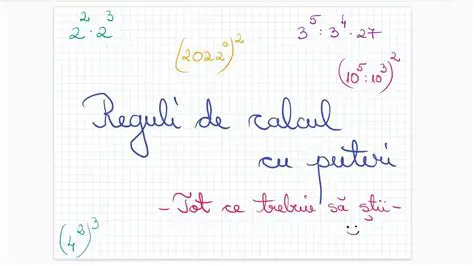 2² · 2³
3⁵ : 3⁴ · 27
(2022⁰)²
(10⁵ : 10³)²
Reguli de calcul
cu puteri
- Tot ce trebuie să știi -
(4²)³